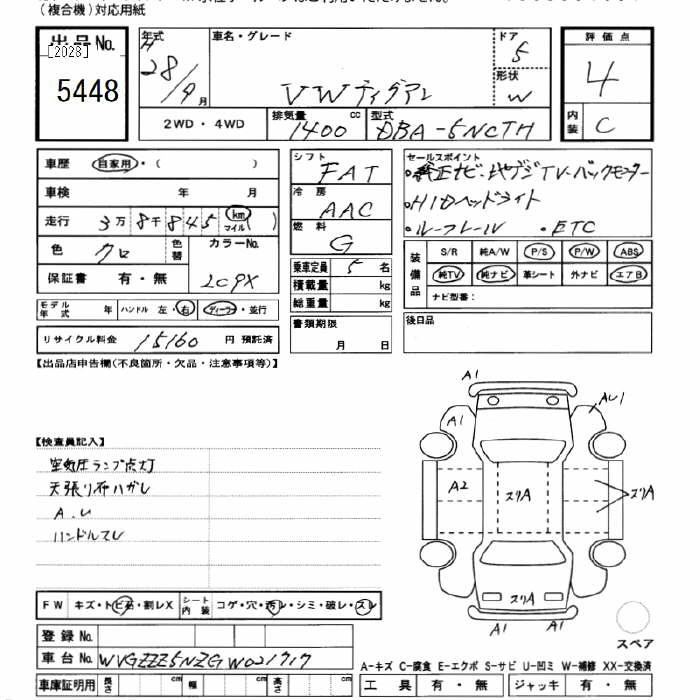 (複合機)対応用紙
出品No. [2028] 5448
年式 H 28/9月
車名・グレード VWティグアン
ドア 5
形状 W
評価点 4
内装 C
2WD・4WD
排気量 1400 cc
型式 DBA-5NCTH
車歴 自家用・( )
車検 年 月
走行 3万8千845 km マイル ( )
色 クロ 色替
カラーNo. 2C9X
保証書 有・無
モデル年式 年 ハンドル 左・右 ディーラー・並行
リサイクル料金 15160 円 預託済
シフト FAT
冷房 AAC
燃料 G
乗車定員 5 名
積載量 kg
総重量 kg
書類期限 月 日
セールスポイント
・純正ナビ・地デジTV・バックモニター
・HIDヘッドライト
・ルーフレール ・ETC
装備品 S/R 純A/W P/S P/W ABS
純TV 純ナビ 革シート 外ナビ エアB
ナビ型番:
後日品
【出品店申告欄(不良箇所・欠品・注意事項等)】
【検査員記入】
空気圧ランプ点灯
天張り布ハガレ
A.U
ハンドルスレ
A1
A1
AU1
A2
スリA
スリA
スリA
A1
A1
スペア
FW キズ・トビ石・割レX シート内装 コゲ・穴・汚レ・シミ・破レ・スレ
登録No.
車台No. WVGZZZ5NZGW021717
車庫証明用 長さ cm 幅 cm 高さ cm
A-キズ C-腐食 E-エクボ S-サビ U-凹ミ W-補修 XX-交換済
工具 有・無 ジャッキ 有・無